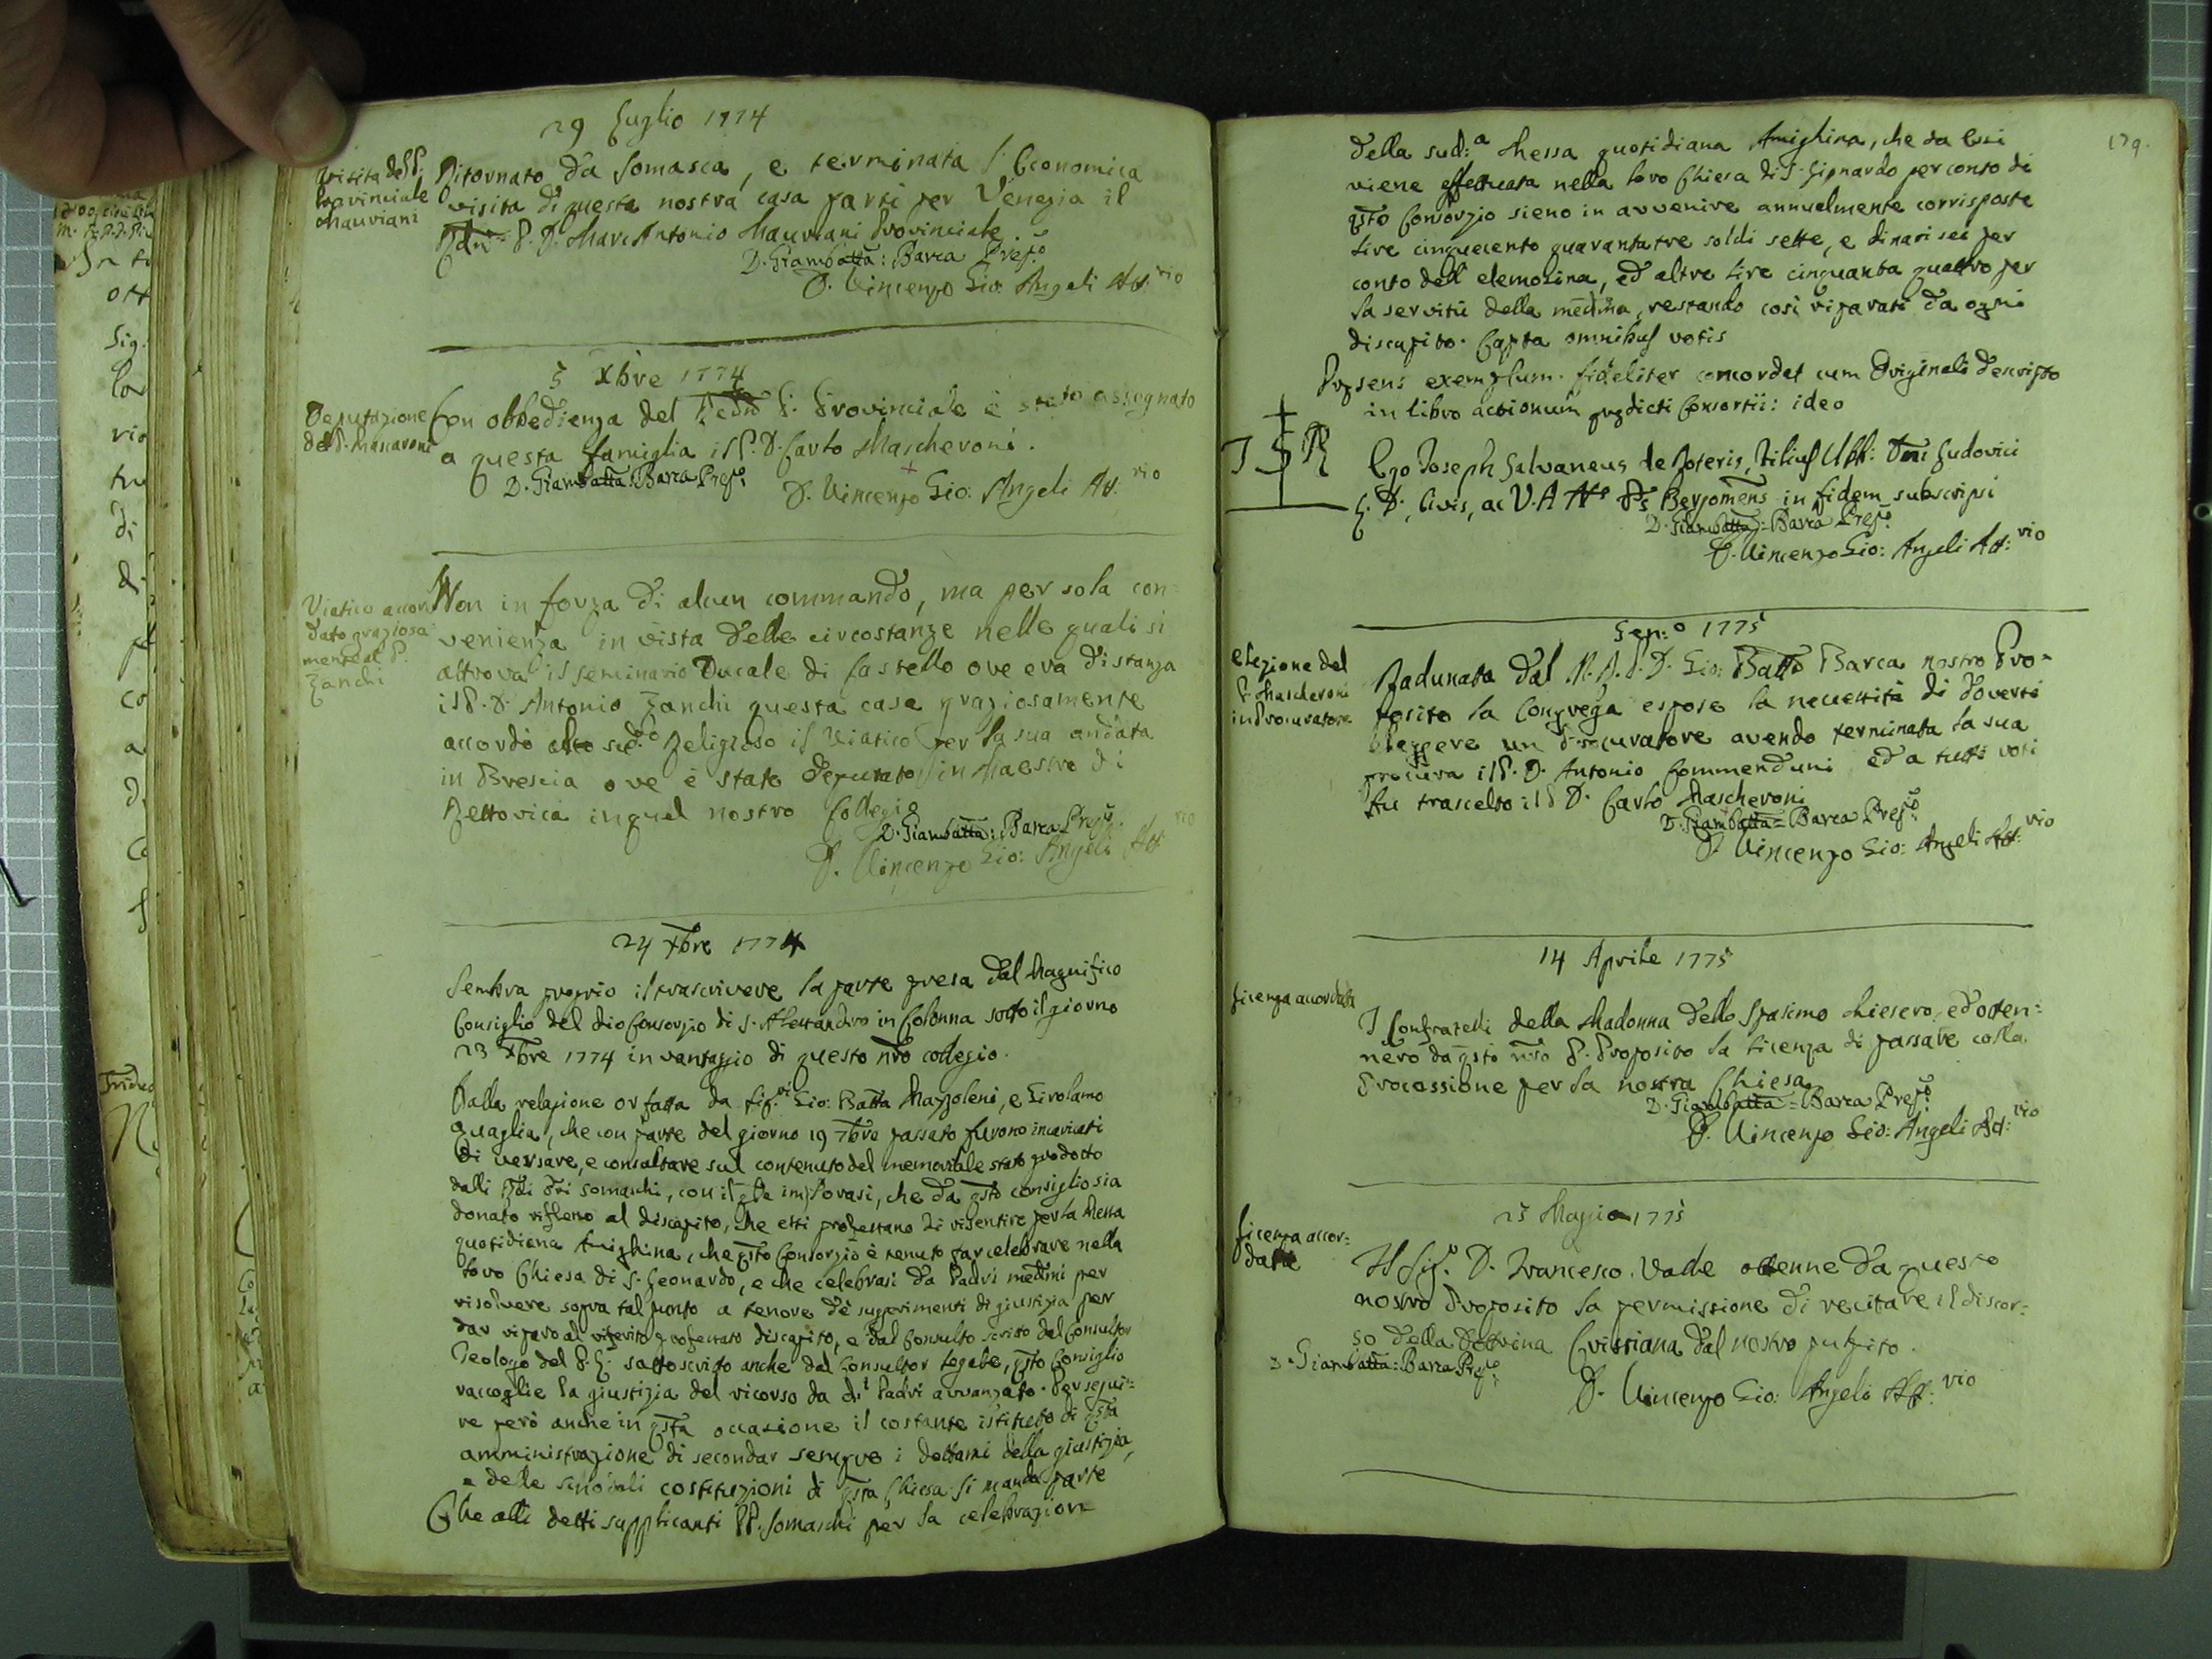 29 Luglio 1774
Visita del P.
Provinciale
Mauriani
Ritornato da Somasca, e terminata l'Economica
visita di questa nostra casa partì per Venezia il
P. D. Marc'Antonio Mauriani Provinciale.
D. Giambatta: Barca Prep.to
D. Vincenzo Gio: Angeli Att:rio
5 Xbre 1774
Deputazione
del P. Mascaroni
Con obbedienza del Redño P. Provinciale è stato assegnato
a questa famiglia il P. D. Carlo Mascheroni.
D. Giambatta: Barca Prep.to
D. Vincenzo Gio: Angeli Att:rio
Viatico accor
dato graziosa
mente al P.
Zanchi
Non in forza di alcun commando, ma per sola con=
venienza in vista delle circostanze nelle quali si
attrova il Seminario Ducale di Castello ove era di stanza
il P. D. Antonio Zanchi questa casa graziosamente
accordò allo sud.o Religioso il Viatico per la sua andata
in Brescia ove è stato deputato in Maestro di
Rettorica in quel nostro Collegio
D. Giambatta: Barca Prep.to
D. Vincenzo Gio: Angeli Att:rio
24 Xbre 1774
Sembra proprio il trascrivere la parte presa dal Magnifico
Consiglio del Pio Consorzio di S. Alessandro in Colonna sotto il giorno
23 Xbre 1774 in vantaggio di questo nro collegio.
Dalla relazione or fatta da Sig.ri Gio: Batta Mazzoleni, e Girolamo
Quaglia, che con parte del giorno 19 7bre passato furono incaricati
di versare, e consultare sul contenuto del memoriale stato prodotto
dalli Rdi Pri Somaschi, con il qle implorasi, che da qsto consiglio sia
donato riflesso al discapito, che essi professano di risentire per la Messa
quotidiana Amighina, che qsto Consorzio è tenuto far celebrare nella
loro Chiesa di S. Leonardo, e che celebrasi da Padri medmi per
risolvere sopra tal punto a tenore de suggerimenti di giustizia per
dar riparo al riferito professato discapito, e dal Consulto scritto dal Consultor
Teologo del P. L. sottoscritto anche dal Consultor legale, qsto Consiglio
raccoglie la giustizia del ricorso da d.i Padri avvanzato. Per segui=
re però anche in qsta occasione il costante istituto di qsta
amministrazione di secondar sempre i dettami della giustizia,
e delle sinodali costituzioni di qsta Chiesa si manda parte
Che alli detti supplicanti PP. Somaschi per la celebrazione
179.
della sud:a Messa quotidiana Amighina, che da essi
viene effettuata nella loro Chiesa di S. Leonardo per conto di
qsto Consorzio sieno in avvenire annualmente corrisposte
lire cinquecento quarantatre soldi sette, e dinari sei per
conto dell'elemosina, ed altre lire cinquanta quattro per
la servitù della medma, restando così riparati da ogni
discapito. Capta omnibus votis
Prsens exemplum fideliter concordat cum Originali descripto
in libro actionum prdicti Consortii: ideo
Ego Joseph Galvaneus de Poteris, filius dni Ludovici
civis, ac V. A. Bergomens in fidem subscripsi
D. Giambatta: Barca Prep.to
D. Vincenzo Gio: Angeli Att:rio
Gen:o 1775
Elezione del
P. Mascheroni
in Procuratore
Radunata dal M. R. P. D. Gio: Batta Barca nostro Pro=
posito la Congrega espose la necessità di doversi
eleggere un Procuratore avendo terminata la sua
procura il P. D. Antonio Commenduni ed a tutti voti
fu trascelto il P. D. Carlo Mascheroni
D. Giambatta: Barca Prep.to
D. Vincenzo Gio: Angeli Att:rio
14 Aprile 1775
Licenza accordata
I Confratelli della Madonna dello Spasimo chiesero, ed otten=
nero da qsto nro P. Proposito la licenza di passare colla
Processione per la nostra Chiesa
D. Giambatta: Barca Prep.to
D. Vincenzo Gio: Angeli Att:rio
25 Maggio 1775
Licenza accor=
data
Il Sig.r D. Francesco Valle ottenne da questo
nostro Proposito la permissione di recitare il discor=
so della Dottrina Cristiana dal nostro pulpito.
D. Giambatta: Barca Prep.to
D. Vincenzo Gio: Angeli Att:rio